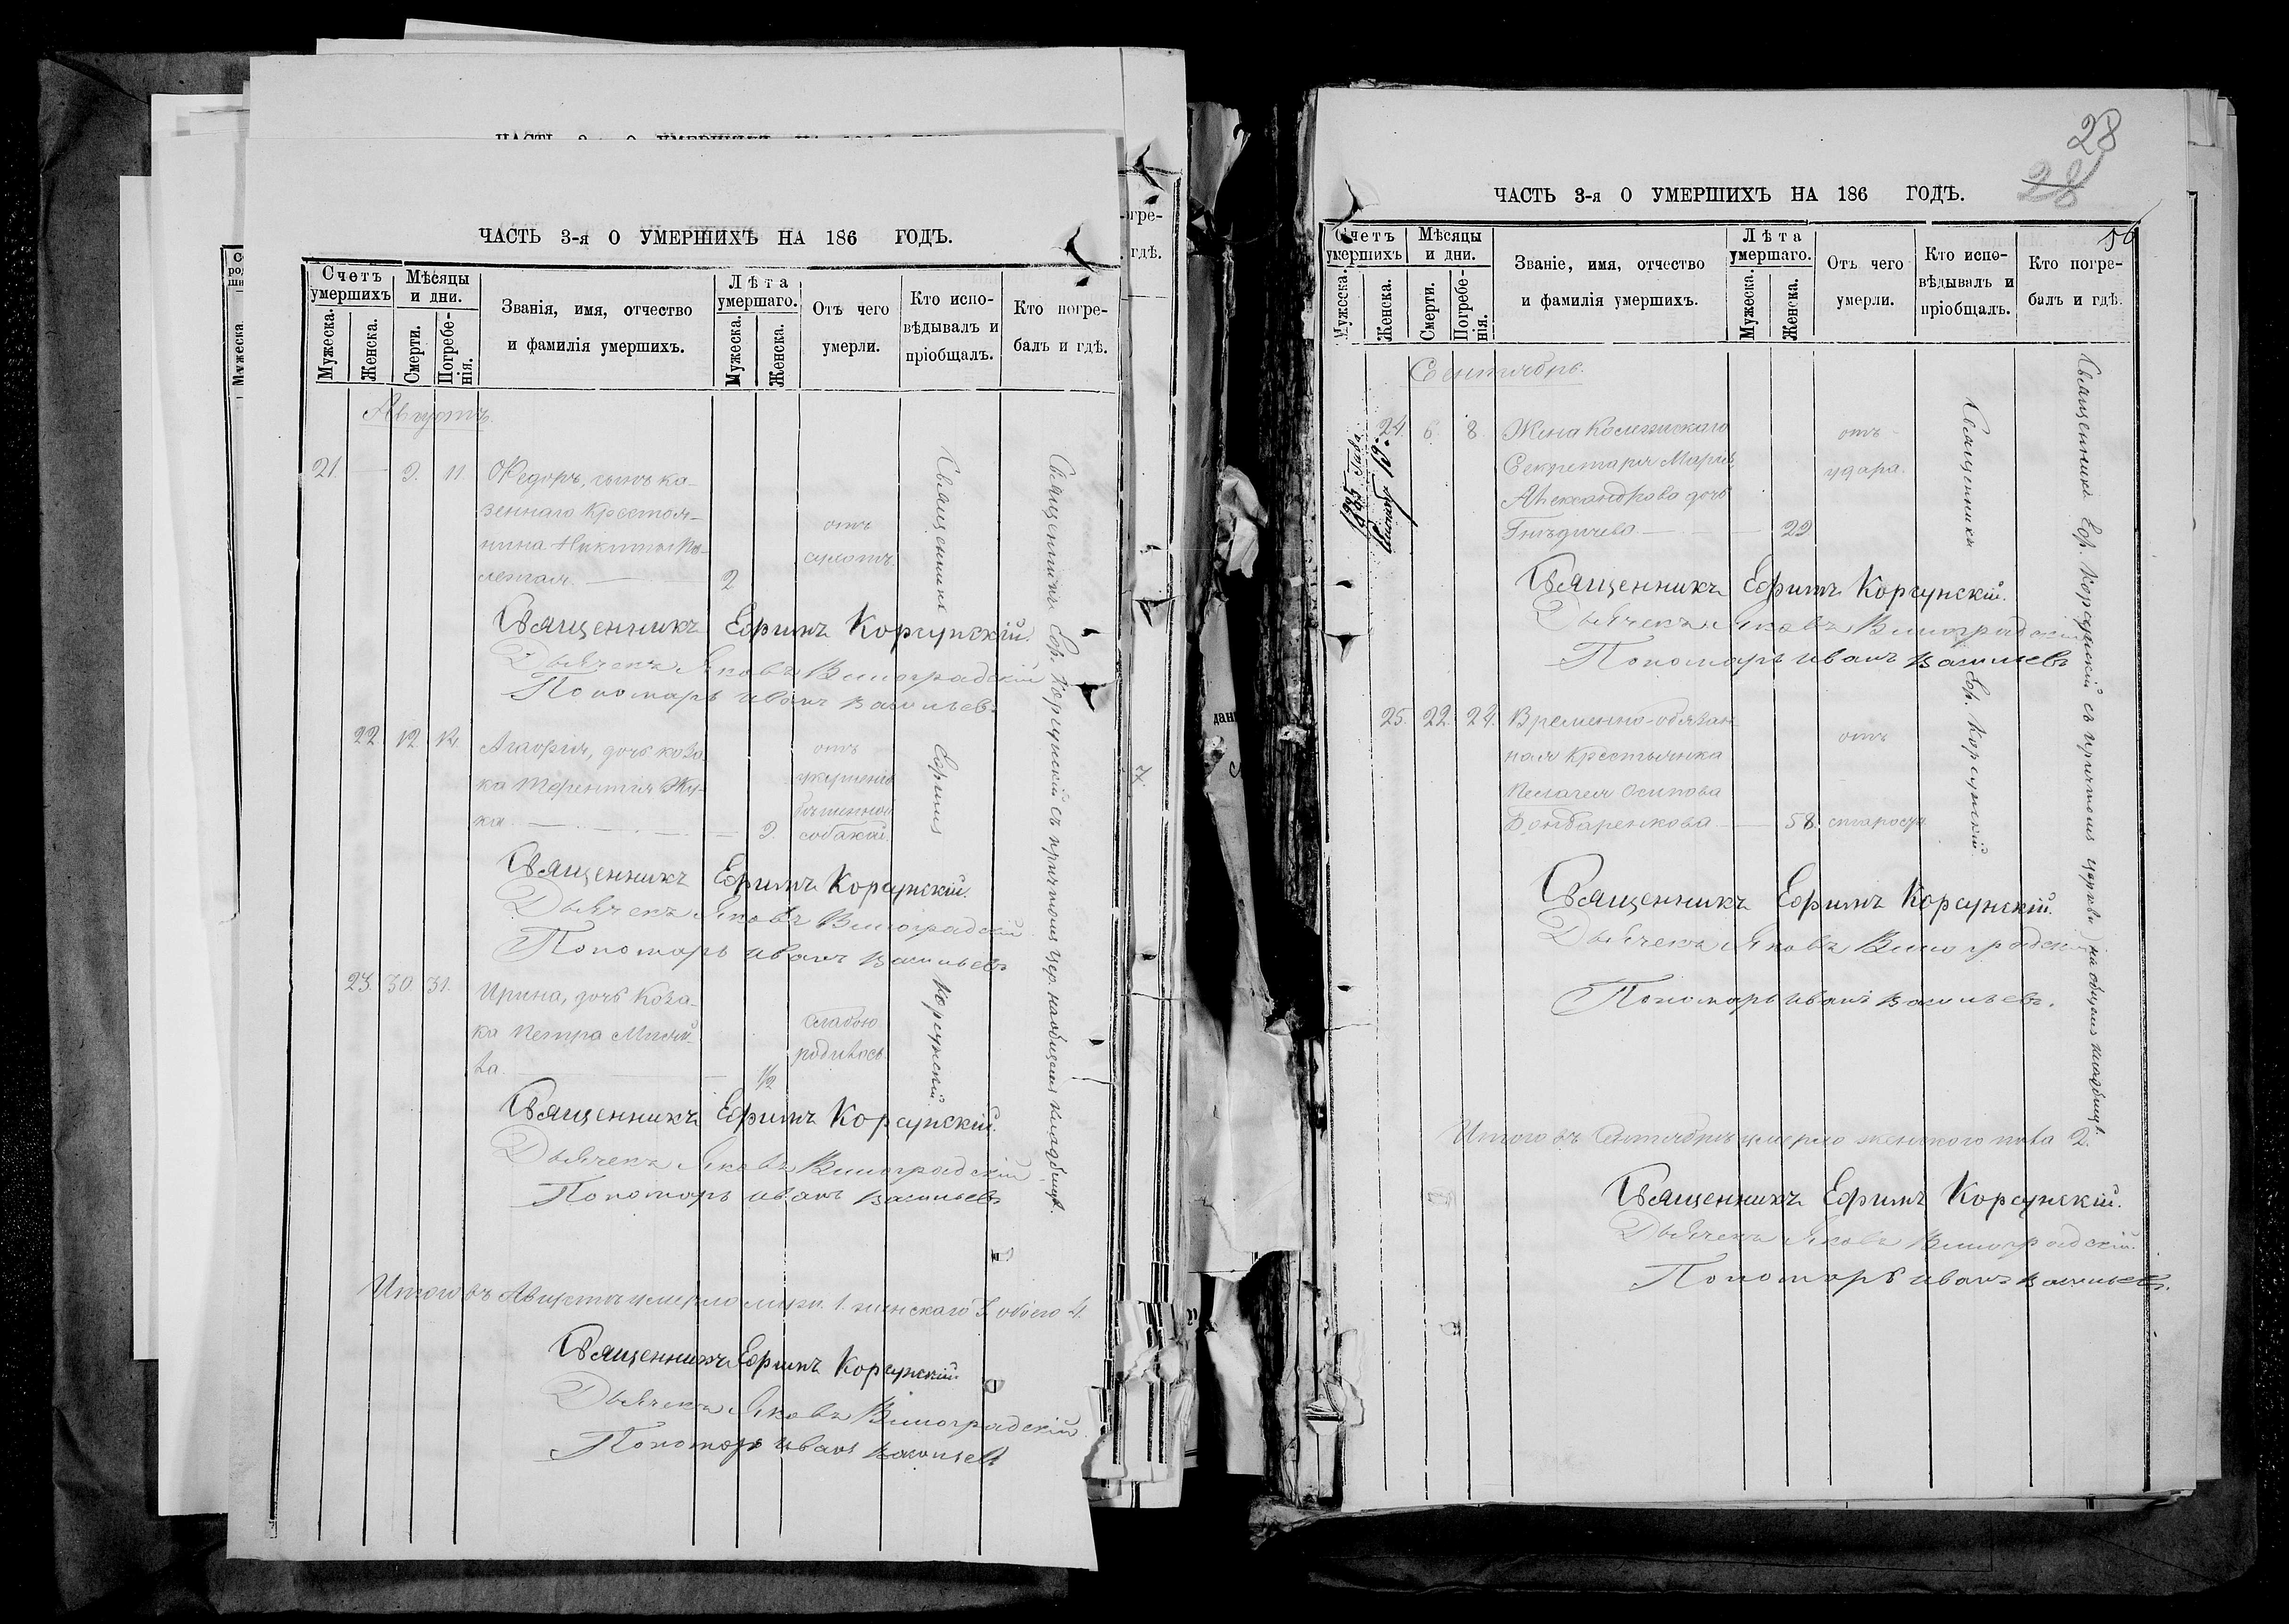 ЧАСТЬ 3-я О УМЕРШИХЪ НА 186 ГОДЪ.
Счетъ умершихъ
Мужеска.
Женска.
Мѣсяцы и дни.
Смерти.
Погребе-
нія.
Званія, имя, отчество
и фамилія умершихъ.
Лѣта умершаго.
Мужеска.
Женска.
Отъ чего
умерли.
Кто испо-
вѣдывалъ и
пріобщалъ.
Кто погре-
балъ и гдѣ.
Августъ.
21. — 9. 11. Ѳедоръ, сынъ ка-
зеннаго Крестья-
нина Никиты
2
отъ
Священникъ Ефимъ Корсунскій.
Дьячекъ Яковъ Виноградскій
Пономарь Иванъ Васильевъ
22. 12. 14. Агафія, дочь коза-
ка Терентія Жу-
ка. — 9.
отъ
укушенія
бѣшенной
собакой.
Священникъ Ефимъ Корсунскій.
Дьячекъ Яковъ Виноградскій
Пономарь Иванъ Васильевъ
23. 30. 31. Ирина, дочь Коза-
ка Петра
ва. — 1/2
слабою
родилась.
Священникъ Ефимъ Корсунскій.
Дьячекъ Яковъ Виноградскій
Пономарь Иванъ Васильевъ
Священникъ
Ефимъ
Корсунскій.
Священникъ Еф. Корсунскій съ причтомъ цер. на общемъ кладбищѣ.
Итого въ Августѣ умерло муж. 1. женскаго 3. обоего 4.
Священникъ Ефимъ Корсунскій.
Дьячекъ Яковъ Виноградскій.
Пономарь Иванъ Васильевъ
гре-
гдѣ.
28
28
50
ЧАСТЬ 3-я О УМЕРШИХЪ НА 186 ГОДѢ.
Счетъ умершихъ
Мужеска.
Женска.
Мѣсяцы и дни.
Смерти.
Погребе-
нія.
Званіе, имя, отчество
и фамилія умершихъ.
Лѣта умершаго.
Мужеска.
Женска.
Отъ чего
умерли.
Кто испо-
вѣдывалъ и
пріобщалъ.
Кто погре-
балъ и гдѣ.
Сентябрь.
24. 6. 8. Жена Колежскаго
Секретаря Марія
Александрова дочь
Гнѣдичева — 29
отъ
удара.
Священникъ Ефимъ Корсунскій.
Дьячекъ Яковъ Виноградскій
Пономарь Иванъ Васильевъ
25. 22. 24. Временно-обязан-
ная Крестьянка
Пелагея Осипова
Бондаренкова — 58.
отъ
старости.
Священникъ Ефимъ Корсунскій.
Дьячекъ Яковъ Виноградскій
Пономарь Иванъ Васильевъ.
Священникъ
Еф. Корсунскій.
Священникъ Еф. Корсунскій съ причтомъ церкви на общемъ кладбищѣ.
Итого въ Сентябрѣ умерло женскаго пола 2.
Священникъ Ефимъ Корсунскій.
Дьячекъ Яковъ Виноградскій.
Пономарь Иванъ Васильевъ.